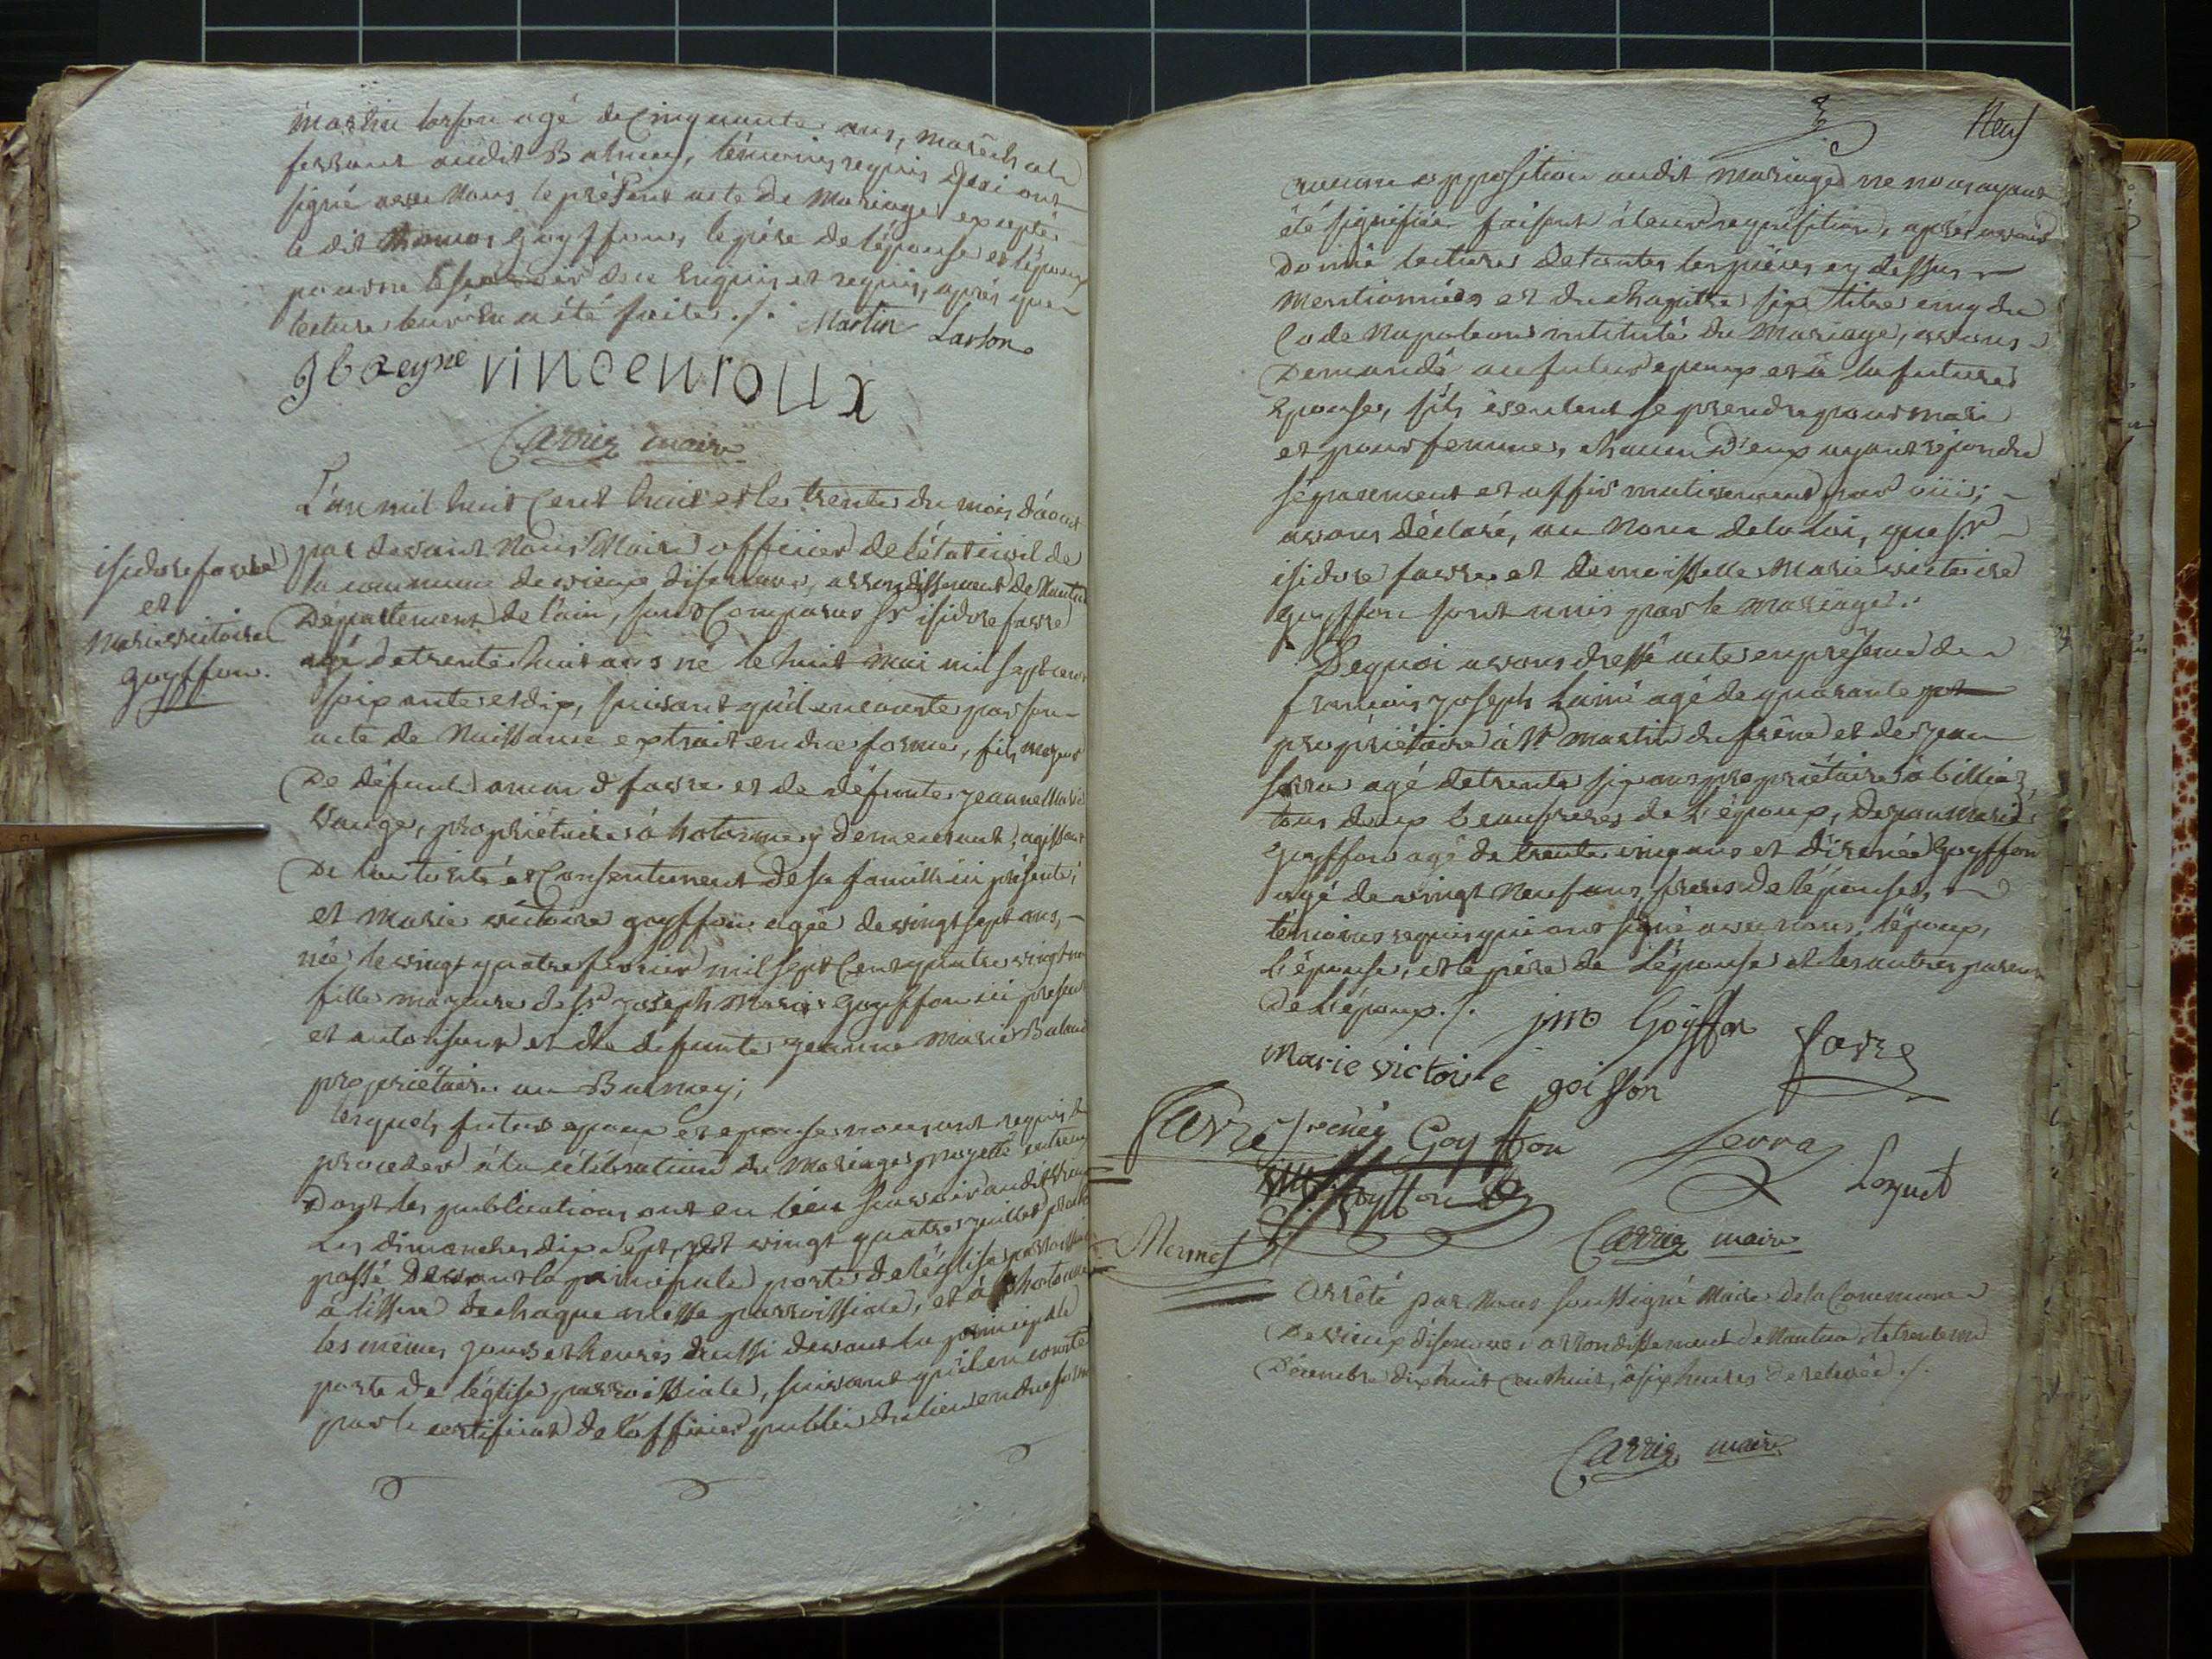 martin larson agé de Cinquante ans, maréchal
ferrant audit Balmey, témoins requis qui ont
signé avec nous le présent acte de mariage excepté
le dit thomas goyffon, le père de l'épouse et l'époux
pour ne le savoir de ce enquis et requis, après que
lecture leur en a été faite ./.
Martin Larson
Jb Reyne vincenroux
Carrier maire
isidore favre
et
marie victoire
goyffon.
L'an mil huit Cent huit et le trente du mois d'aout
par devant nous Maire officier de l'état civil de
la commune de vieux d'isenave, arrondissement de Nantua
Département de l'ain, sont Comparus sr isidore favre
agé de trente huit ans né le huit mai mil sept cent
soixante et dix, suivant qu'il en conste par son
acte de Naissance extrait en due forme, fils majeur
De défunt favre et de défunte jeanne Marie
propriétaire à hotonnes y demeurant, agissant
De l'autorité et Consentement de sa famille ici présente,
et marie victoire goyffon agée de vingt sept ans,
née le vingt quatre fevrier mil sept Cent quatre vingt un
fille majeure de sr joseph Marie goyffon ici présent
et autorisant et de defunte jeanne marie
propriétaire au Balmey;
lesquels futurs epoux et epouse nous ont requis de
proceder à la célébration du mariage projetté entreux
Dont les publications ont eu lieu savoir audit vieux
Les dimanches dix sept et vingt quatre juillet proche
passé devant la principale porte de l'église parroissiale
à l'issue de chaque messe parroissiale, et à hotonnes
les mêmes jours et heures aussi devant la principale
porte de l'église parroissiale, suivant qu'il en conste
par le certificat de l'officier public du lieu en due forme
Neuf
aucune opposition audit mariage ne nous ayant
été signifiée faisant à leur requisition, après avoir
donné lecture de toutes les pièces cy dessus
mentionnées et du chapitre six titre cinq du
Code Napoleon intitulé du Mariage, avons
Demandé au futur epoux et à la future
Epouse, s'ils veulent se prendre pour mari
et pour femme, chacun d'eux ayant répondu
séparément et affirmativement par oüi;
avons déclaré, au nom de la loi, que sr
isidore favre et demoisselle Marie victoire
goyffon sont unis par le mariage.
De quoi avons dressé acte en présence de
francois joseph agé de quarante
propriétaire à St martin du frêne et de jean
serra agé de trente six ans propriétaire à
tous deux beaufreres de L'époux, de jean marie
goyffon agé de trente cinq ans et d'irenée Goyffon
agé de vingt neuf ans, freres de l'épouse,
témoins requis qui ont signé avec nous, l'époux,
L'épouse, et le père de L'épouse et les autres parens
De L'époux ./.
jm Goÿffon
favre
marie victoire goiffon
favre
irénée Goyffon
serra
Goyffon
Loquet
Mermet
Carrier maire
Arrêté par Nous soussigné Maire de la Commune
De vieux d'isenave arrondissement de Nantua le trente un
Décembre dix huit cent huit, à six heures de relevée ./.
Carrier maire